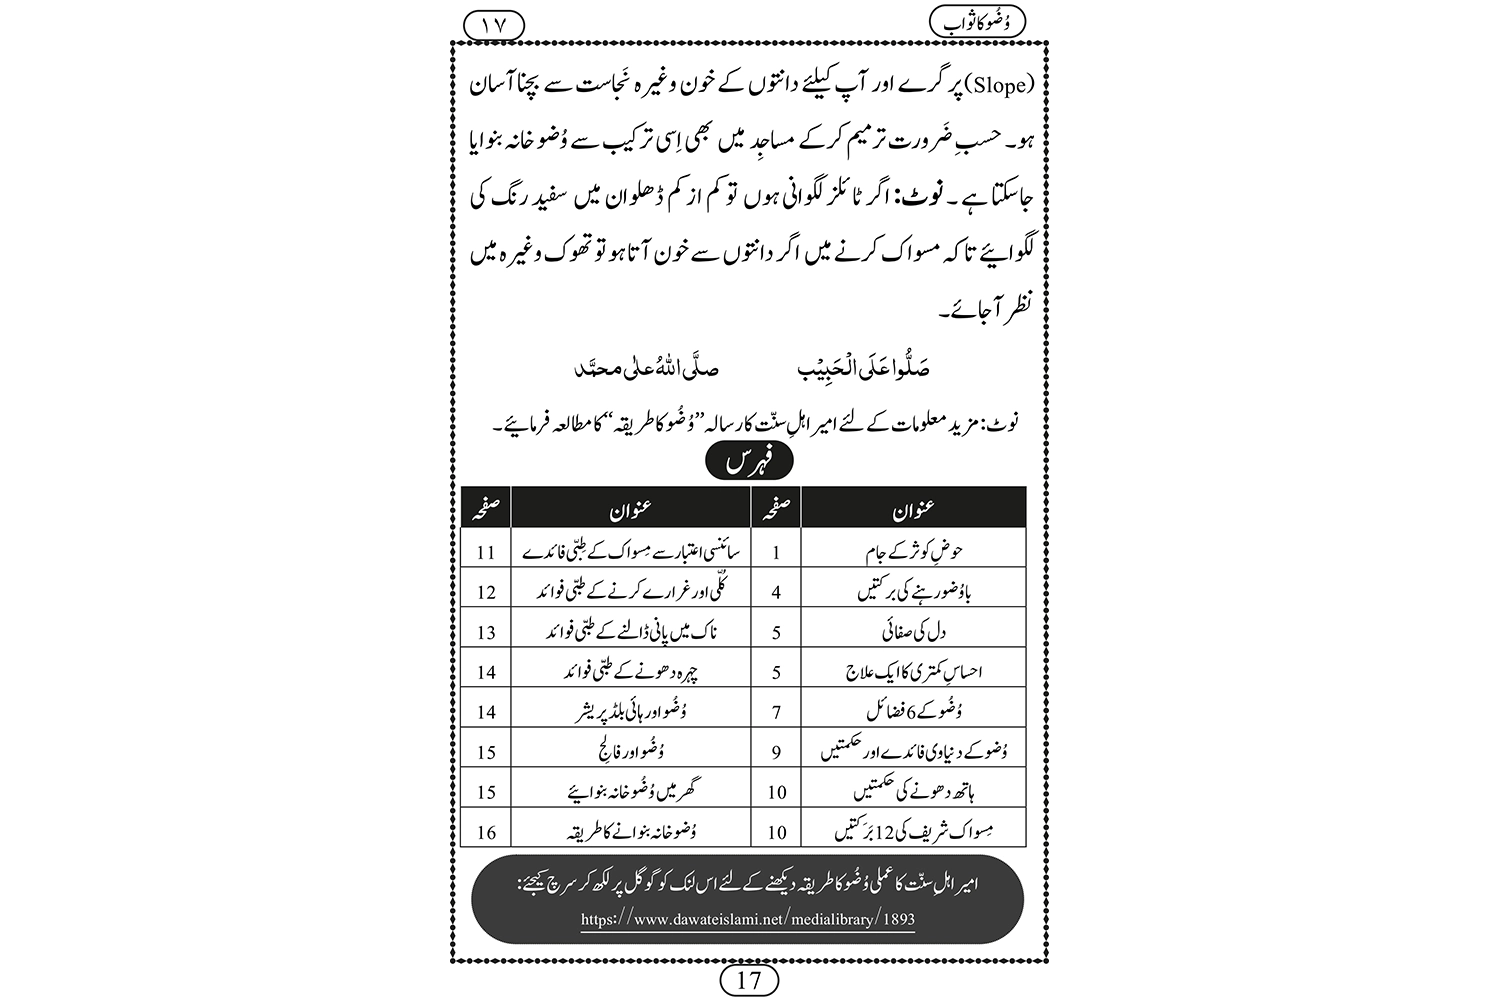 وُضُو کا ثواب
١٧
(Slope) پر گرے اور آپ کیلئے دانتوں کے خون وغیرہ نَجاست سے بچنا آسان
ہو۔ حسبِ ضَرورت ترمیم کرکے مساجِد میں بھی اِسی ترکیب سے وُضو خانہ بنوایا
جاسکتا ہے ۔ نوٹ: اگر ٹائلز لگوانی ہوں تو کم از کم ڈھلوان میں سفید رنگ کی
لگوایئے تاکہ مسواک کرنے میں اگر دانتوں سے خون آتا ہو تو تھوک وغیرہ میں
نظر آجائے۔
صَلُّوا عَلَی الْحَبِیْب صلَّی اللهُ علٰی محمَّد
نوٹ: مزید معلومات کے لئے امیر اہلِ سنّت کا رسالہ ’’وُضُو کا طریقہ‘‘ کا مطالعہ فرمایئے۔
فہرس
عنوان صفحہ عنوان صفحہ
حوضِ کوثر کے جام 1 سائنسی اعتبار سے مِسواک کے طِبّی فائدے 11
باوُضو رہنے کی برکتیں 4 کُلّی اور غرارے کرنے کے طبّی فوائد 12
دل کی صفائی 5 ناک میں پانی ڈالنے کے طبّی فوائد 13
احساسِ کمتری کا ایک علاج 5 چہرہ دھونے کے طبّی فوائد 14
وُضُو کے 6 فضائل 7 وُضُو اور ہائی بلڈ پریشر 14
وُضو کے دنیاوی فائدے اور حکمتیں 9 وُضُو اور فالج 15
ہاتھ دھونے کی حکمتیں 10 گھر میں وُضُو خانہ بنوائیے 15
مِسواک شریف کی 12 بَرَکتیں 10 وُضو خانہ بنوانے کا طریقہ 16
امیر اہلِ سنّت کا عملی وُضُو کا طریقہ دیکھنے کے لئے اس لنک کو گوگل پر لکھ کر سرچ کیجئے:
https://www.dawateislami.net/medialibrary/1893
17